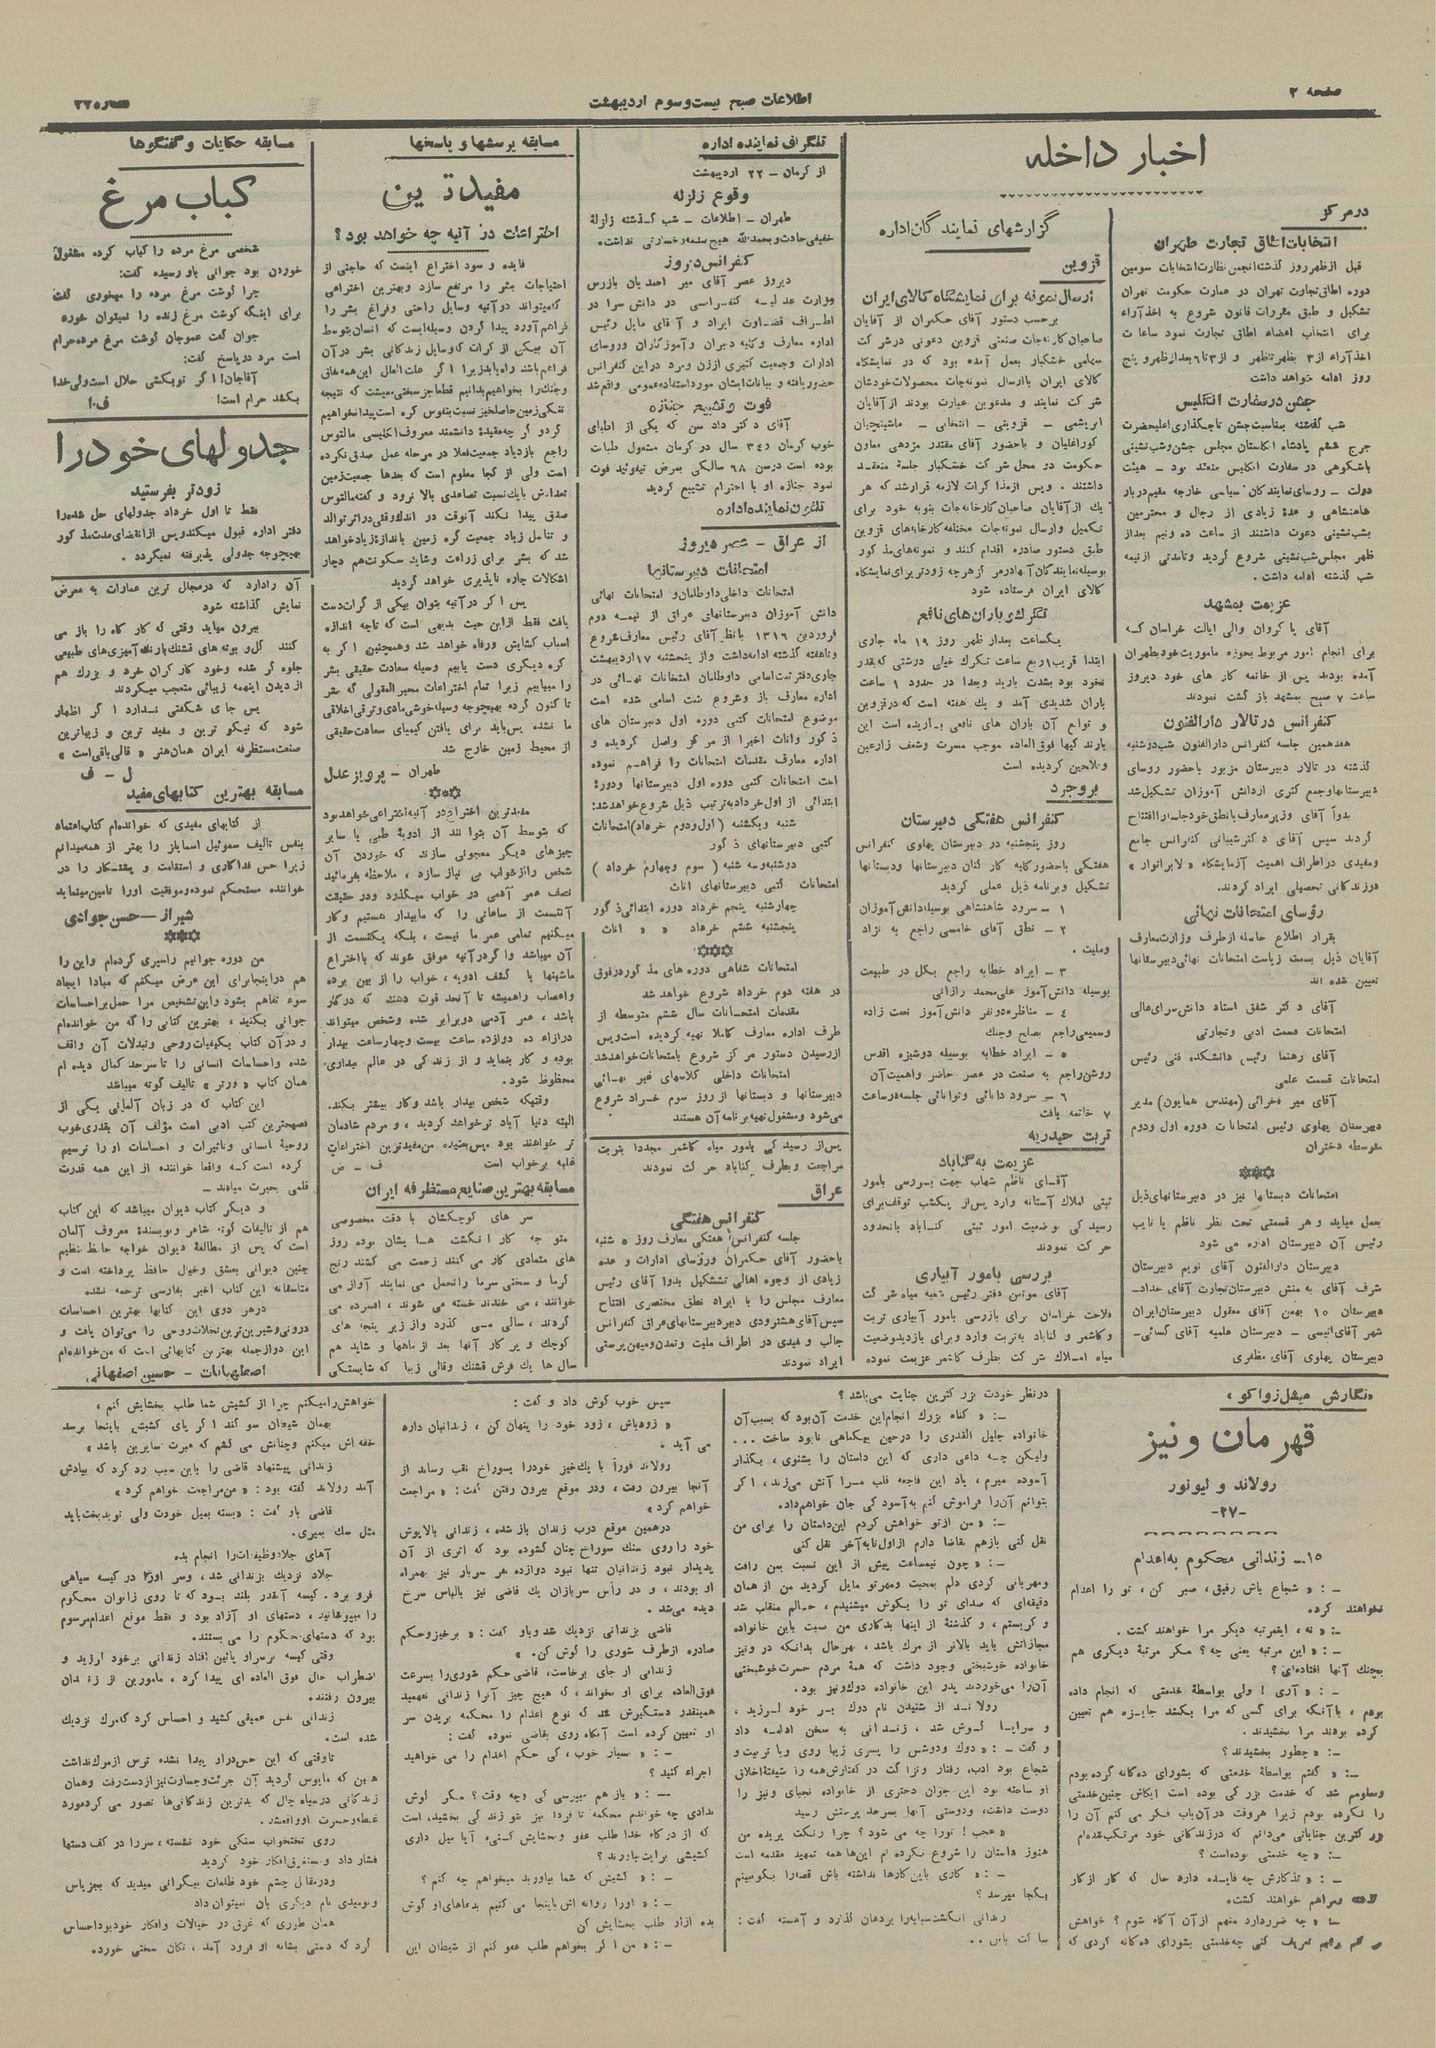 صفحه ۲
اطلاعات صبح بیست‌وسوم اردیبهشت
شماره ۲۷
اخبار داخله
در مرکز
انتخابات اطاق تجارت طهران
قبل از ظهر روز گذشته انجمن نظارت انتخابات سومین
دوره اطاق تجارت تهران در عمارت حکومت تهران
تشکیل و طبق مقررات قانون شروع به اخذ آراء
برای انتخاب اعضاء اطاق تجارت نمود ساعات
اخذ آراء از ۳ بظهر تا ظهر و از ۳ تا ۶ بعد از ظهر و پنج
روز ادامه خواهد داشت
جشن در سفارت انگلیس
شب گذشته بمناسبت جشن تاجگذاری اعلیحضرت
جرج ششم پادشاه انگلستان مجلس جشن و شب نشینی
باشکوهی در سفارت انگلیس منعقد بود – هیئت
دولت – روسای نمایندگان سیاسی خارجه مقیم دربار
شاهنشاهی و عدهٔ زیادی از رجال و محترمین
بشب نشینی دعوت داشتند از ساعت ده و نیم بعد از
ظهر مجلس شب نشینی شروع گردید و تا مدتی از نیمه
شب گذشته ادامه داشت .
عزیمت بمشهد
آقای پاکروان والی ایالت خراسان که
برای انجام امور مربوط بحوزه ماموریت خود بطهران
آمده بودند پس از خاتمه کار های خود دیروز
ساعت ۷ صبح بمشهد باز گشت نمودند
کنفرانس در تالار دارالفنون
هفدهمین جلسه کنفرانس دارالفنون شب دوشنبه
گذشته در تالار دبیرستان مزبور با حضور روسای
دبیرستانها و جمع کثری از دانش آموزان تشکیل شد
بدواً آقای وزیر معارف با نطق خود جلسه را افتتاح
گردند سپس آقای دکتر شیبانی کنفرانس جامع
و مفیدی در اطراف اهمیت آزمایشگاه « لابراتوار »
در زندگانی تحصیلی ایراد کردند.
رؤسای امتحانات نهائی
بقرار اطلاع حاصله از طرف وزارت معارف
آقایان ذیل بسمت ریاست امتحانات نهائی دبیرستانها
تعیین شده اند
آقای دکتر شفق استاد دانش سرای عالی
امتحانات قسمت ادبی و تجارتی
آقای رهنما رئیس دانشکده فنی رئیس
امتحانات قسمت علمی
آقای میر فخرائی (مهندس همایون) مدیر
دبیرستان پهلوی رئیس امتحانات دوره اول و دوم
متوسطه دختران
امتحانات دبستانها نیز در دبیرستانهای ذیل
بعمل میاید و هر قسمتی تحت نظر ناظم یا نایب
رئیس آن دبیرستان اداره می شود
دبیرستان دارالفنون آقای نویم دبیرستان
شرف آقای به منش دبیرستان تجارت آقای حداد–
دبیرستان ۱۵ بهمن آقای معقول دبیرستان ایران
شهر آقای انیسی – دبیرستان علمیه آقای کسائی–
دبیرستان پهلوی آقای مظفری
گزارشهای نمایندگان اداره
قزوین
ارسال نمونه برای نمایشگاه کالای ایران
برحسب دستور آقای حکمران از آقایان
صاحبان کارخانجات صنعتی قزوین دعوتی در شرکت
سهامی خشکبار بعمل آمده بود که در نمایشگاه
کالای ایران با ارسال نمونه‌جات محصولات خودشان
شرکت نمایند و مدعوین عبارت بودند از آقایان
ابریشمی – قزوینی – انتخابی – ماشینچیان
کوراغلیان و با حضور آقای مقتدر مژدهی معاون
حکومت در محل شرکت خشکبار جلسهٔ منعقد
داشتند . و پس از مذاکرات لازمه قرار شد که هر
یک از آقایان صاحبان کارخانه‌جات بنوبه خود برای
تکمیل و ارسال نمونه‌جات مختلفه کارخانه‌های قزوین
طبق دستور صادره اقدام کنند و نمونه‌های مذکور
بوسیله نمایندگان آنها در مرکز هر چه زودتر برای نمایشگاه
کالای ایران فرستاده شود
تگرگ و باران های نافع
یکساعت بعد از ظهر روز ۱۹ ماه جاری
ابتدا قریب ۱ ربع ساعت تگرگ خیلی درشتی که بقدر
نخود بود بشدت بارید و بعدا در حدود ۱ ساعت
باران شدیدی آمد و یک هفته است که در قزوین
و توابع آن باران های نافعی باریده است این
بارندگیها فوق‌العاده موجب مسرت و شعف زارعین
و فلاحین گردیده است
بروجرد
کنفرانس هفتگی دبیرستان
روز پنجشنبه در دبیرستان پهلوی کنفرانس
هفتگی با حضور کلیه کارکنان دبیرستانها و دبستانها
تشکیل و برنامه ذیل عملی گردید
۱ – سرود شاهنشاهی بوسیله دانش آموزان
۲ – نطق آقای خامسی راجع به نژاد
و ملیت .
۳ – ایراد خطابه راجع بگل در طبیعت
بوسیله دانش آموز علی محمد رازانی
٤ – مناظره دو نفر دانش آموز نعمت زاده
وسمیعی راجع بصلح و جنگ
٥ – ایراد خطابه بوسیله دوشیزه اقدس
روشن راجع به صنعت در عصر حاضر و اهمیت آن
٦ – سرود دانائی و توانائی جلسه در ساعت
۷ خاتمه یافت
تربت حیدریه
عزیمت به گناباد
آقای ناظم شهاب جهت بررسی بامور
ثبتی املاک آستانه وارد پس از یکشب توقف برای
رسیدگی بوضعیت امور ثبتی گناباد بانحدود
حرکت نمودند
بررسی بامور آبیاری
آقای موتمن دفتر رئیس شعبه میاه شرکت
فلاحت خراسان برای بازرسی بامور آبیاری تربت
و کاشمر و گناباد به تربت وارد و برای بازدید وضعیت
میاه املاک شرکت بطرف کاشمر عزیمت نموده
تلگراف نماینده اداره
از کرمان – ۲۲ اردیبهشت
وقوع زلزله
طهران – اطلاعات – شب گذشته زلزلهٔ
خفیفی حادث و بحمدالله هیچ صدمه و خسارتی نداشت.
کنفرانس دیروز
دیروز عصر آقای میر احمدیان بازرس
وزارت عدلیه کنفرانسی در دانش سرا در
اطراف قضاوت ایراد و آقای مایل رئیس
اداره معارف و کلیه دبیران و آموزگاران و روسای
ادارات و جمعیت کثیری از زن و مرد در این کنفرانس
حضور یافته و بیانات ایشان مورد استفاده عمومی واقع شد
فوت و تشییع جنازه
آقای دکتر داد سن که یکی از اطبای
خوب کرمان و ۳٤ سال در کرمان مشغول طبابت
بوده است درسن ٦٨ سالگی بمرض تیفوئید فوت
نمود جنازه او با احترام تشییع گردید
تلفن نماینده اداره
از عراق – عصر دیروز
امتحانات دبیرستانها
امتحانات داخلی داوطلبان و امتحانات نهائی
دانش آموزان دبیرستانهای عراق از نیمه دوم
فروردین ۱۳۱٦ با نظر آقای رئیس معارف شروع
و تا هفته گذشته ادامه داشت و از پنجشنبه ۱۷ اردیبهشت
جاری دفتر ثبت اسامی داوطلبان امتحانات نهائی در
اداره معارف باز و شروع بثبت اسامی شده است
موضوع امتحانات کتبی دوره اول دبیرستان های
ذکور و اناث اخیرا از مرکز واصل گردیده و
اداره معارف مقدمات امتحانات را فراهم نموده
است امتحانات کتبی دوره اول دبیرستانها و دورهٔ
ابتدائی از اول خرداد بترتیب ذیل شروع خواهد شد:
شنبه و یکشنبه ( اول و دوم خرداد) امتحانات
کتبی دبیرستانهای ذکور
دوشنبه و سه شنبه ( سوم و چهارم خرداد )
امتحانات کتبی دبیرستانهای اناث
چهارشنبه پنجم خرداد دوره ابتدائی ذکور
پنجشنبه ششم خرداد « « اناث
امتحانات شفاهی دوره های مذکور در فوق
در هفته دوم خرداد شروع خواهد شد
مقدمات امتحانات سال ششم متوسطه از
طرف اداره معارف کاملا تهیه گردیده است و پس
از رسیدن دستور مرکز شروع بامتحانات خواهد شد
امتحانات داخلی کلاسهای غیر نهائی
دبیرستانها و دبستانها از روز سوم خرداد شروع
می‌شود و مشغول تهیه برنامه آن هستند
پس از رسیدگی بامور میاه کاشمر مجددا بتربت
مراجعت و بطرف گناباد حرکت نمودند
عراق
کنفرانس هفتگی
جلسه کنفرانس هفتگی معارف روز ۵ شنبه
باحضور آقای حکمران و رؤسای ادارات و عده
زیادی از وجوه اهالی تشکیل بدوا آقای رئیس
معارف مجلس را با ایراد نطق مختصری افتتاح
سپس آقای هشترودی دبیر دبیرستانهای عراق کنفرانس
جالب و مفیدی در اطراف ملیت و تمدن و میهن پرستی
ایراد نمودند
مسابقه پرسشها و پاسخها
مفیدترین
اختراعات در آتیه چه خواهد بود؟
فایده و سود اختراع اینست که حاجتی از
احتیاجات بشر را مرتفع سازد و بهترین اختراعی
که میتواند در آتیه وسایل راحتی و فراغ بشر را
فراهم آورد پیدا کردن وسیله‌ایست که انسان بتوسط
آن بیکی از کرات که وسایل زندگانی بشر در آن
فراهم باشد راه یابد زیرا اگر علت‌العلل این همه نفاق
وجنگ را بخواهیم بدانیم قطعا جز سختی معیشت که نتیجه
تنگی زمین حاصلخیز نسبت بنفوس کره است پیدا نخواهیم
کرد و گر چه عقیدهٔ دانشمند معروف انگلیسی مالتوس
راجع بازدیاد جمعیت فعلا در مرحله عمل صدق نکرده
است ولی از کجا معلوم است که بعدها جمعیت زمین
تعدادش با یک نسبت تصاعدی بالا نرود و گفته مالتوس
صدق پیدا نکند آنوقت در اندک وقتی در اثر توالد
و تناسل زیاد جمعیت کره زمین باندازهٔ زیاد خواهد
شد که بشر برای زراعت و شاید سکونت هم دچار
اشکالات چاره ناپذیری خواهد گردید
پس اگر در آتیه بتوان بیکی از کرات دست
یافت فقط از این حیث بدیهی است که تا چه اندازه
اسباب گشایش و رفاه خواهد شد و همچنین اگر به
کره دیگری دست یابیم وسیله سعادت حقیقی بشر
را مییابیم زیرا تمام اختراعات محیرالعقولی که بشر
تا کنون کرده بهیچوجه وسیله خوشی مادی و ترقی اخلاقی
ما نشده پس باید برای یافتن کیمیای سعادت حقیقی
از محیط زمین خارج شد
طهران – پرویز عدل
مفیدترین اختراع در آتیه اختراعی خواهد بود
که بتوسط آن بتوانند از ادویهٔ طبی یا سایر
چیزهای دیگر معجونی سازند که خوردن آن
شخص را از خواب بی نیاز سازد ، ملاحظه بفرمائید
نصف عمر آدمی در خواب میگذرد و در حقیقت
آنقسمت از ساعاتی را که ما بیدار هستیم و کار
میکنیم تمامی عمر ما نیست ، بلکه یکقسمت از
آن میباشد و اگر در آتیه موفق شوند که با اختراع
ماشینها یا کشف ادویه ، خواب را از بین برده
واعصاب را همیشه تا آنحد قوت دهند که در کار
باشد ، عمر آدمی دو برابر شده و شخص میتواند
در ازاء ده دوازده ساعت بیست و چهار ساعت بیدار
بوده و کار بنماید و از زندگی در عالم بیداری،
محظوظ شود.
وقتیکه شخص بیدار باشد و کار بیشتر بکند.
البته دنیا آباد تر خواهد گردید ، و مردم شادمان
تر خواهند بود پس بعقیده من مفیدترین اختراعات
غلبه بر خواب است
ف – ض
مسابقه بهترین صنایع مستظرفه ایران
سر های کوچکشان با دقت مخصوصی
متوجه کار انگشت هایشان بوده روز
های متمادی کار می کنند زحمت می کشند رنج
گرما و سختی سرما را تحمل می نمایند آواز می
خوانند ، می خندند خسته می شوند ، افسرده می
گردند ، سالی می گذرد و از زیر پنجه های
کوچک و پر کار آنها بعد از ماهها و شاید هم
سال ها یک فرش قشنگ و قالی زیبا که شایستگی
مسابقه حکایات و گفتگوها
کباب مرغ
شخصی مرغ مرده را کباب کرده مشغول
خوردن بود جوانی باو رسیده گفت:
چرا گوشت مرغ مرده را میخوری گفت
برای اینکه گوشت مرغ زنده را نمیتوان خورد
جوان گفت عموجان گوشت مرغ مرده حرام
است مرد در پاسخ گفت:
آقاجان! اگر تو بکشی حلال است ولی خدا
بکشد حرام است!
ف.ا
جدولهای خود را
زودتر بفرستید
فقط تا اول خرداد جدولهای حل شده را
دفتر اداره قبول میکند و پس از انقضای مدت مذکور
بهیچوجه جدولی پذیرفته نمیگردد .
آن را دارد که در مجلل ترین عمارات به معرض
نمایش گذاشته شود
بیرون میاید وقتی که کار گاه را باز می
کنند گل و بوته های قشنگ با رنگ آمیزی‌های طبیعی
جلوه گر شده و خود کار کران خرد و بزرگ هم
از دیدن اینهمه زیبائی متعجب میگردند
پس جای شگفتی ندارد اگر اظهار
شود که نیکو ترین و مفید ترین و زیباترین
صنعت مستظرفه ایران همان هنر « قالی بافی است »
ل – ف
مسابقه بهترین کتابهای مفید
از کتابهای مفیدی که خوانده‌ام کتاب اعتماد
بنفس تالیف سموئیل اسمایلز را بهتر از همه میدانم
زیرا حس فداکاری و استقامت و پشتکار را در
خواننده مستحکم نموده و موفقیت اورا تامین مینماید
شیراز – حسن جوادی
من دوره جوانیم را سپری کرده‌ام و این را
هم در اینجا برای این عرض میکنم که مبادا ایجاد
سوء تفاهم بشود و این تشخیص مرا حمل بر احساسات
جوانی بکنید ، بهترین کتابی را که من خوانده‌ام
و در آن کتاب بکیفیات روحی و تبدلات آن واقف
شده و احساسات انسانی را تا سرحد کمال دیده ام
همان کتاب « ورتر » تالیف گوته میباشد
این کتاب که در زبان آلمانی یکی از
فصیحترین کتب ادبی است مؤلف آن بقدری خوب
روحیهٔ انسانی و تاثیرات و احساسات او را ترسیم
کرده است که واقعا خواننده از این همه قدرت
قلمی بحیرت میافتد –
و دیگر کتاب دیوان میباشد که این کتاب
هم از تالیفات گوته شاعر و نویسندهٔ معروف آلمان
است که پس از مطالعهٔ دیوان خواجه حافظ بنظیم
چنین دیوانی بعشق و خیال حافظ پرداخته است و
متاسفانه این کتاب اخیر بفارسی ترجمه نشده
در هر دوی این کتابها بهترین احساسات
درونی و شیرین‌ترین تخیلات روحی را می‌توان یافت و
این دو از جمله بهترین کتابهائی است که من خوانده‌ام
اصطهبانات – حسین اصفهانی
«نگارش میشل زواکو»
قهرمان ونیز
رولاند و لیونور
-۲۷-
۱۵ـ زندانی محکوم به اعدام
ـ : « شجاع باش رفیق، صبر کن ، تو را اعدام
نخواهند کرد.
ـ: « نه ، اینمرتبه دیگر مرا خواهند کشت .
ـ : « این مرتبه یعنی چه ؟ مگر مرتبهٔ دیگری هم
بچنگ آنها افتاده‌ای ؟
ـ : « آری ! ولی بواسطهٔ خدمتی که انجام داده
بودم ، با آنکه برای کسی که مرا بکشد جایزه هم تعیین
کرده بودند مرا بخشیدند .
ـ: « چطور بخشیدند ؟
ـ: « گفتم بواسطهٔ خدمتی که بشورای ده‌گانه کرده بودم
ومعلومم شد که خدمت بزرگی بوده است ایکاش چنین خدمتی
را نکرده بودم زیرا هر وقت در آن باب فکر می کنم آن را
بزرگترین جنایاتی می‌دانم که در زندگانی خود مرتکب شده‌ام
ـ: « چه خدمتی بوده است ؟
ـ: « تذکارش چه فایده دارد حال که کار از کار
گذشته همراهم خواهند کشت.
ـ: « چه ضرر دارد منهم از آن آگاه شوم ؟ خواهش
می کنم برایم تعریف کنی چه خدمتی بشورای ده‌گانه کردی که
در نظر خودت بزرگترین جنایت می‌باشد ؟
ـ: « گناه بزرگ انجام این خدمت آن بود که بسبب آن
خانواده جلیل القدری را در حین بیگناهی نابود ساخت ...
ولیکن چه داعی داری که این داستان را بشنوی ، بگذار
آسوده میرم ، یاد این فاجعه قلب مرا آتش می‌زند ، اگر
بتوانم آن را فراموش کنم به آسودگی جان خواهم داد.
ـ: « من از تو خواهش کردم این داستان را برای من
نقل کنی بازهم تقاضا دارم از اول تا به آخر نقل کنی
ـ: « چون نیمساعت پیش از این نسبت بمن رافت
ومهربانی کردی دلم بمحبت ومهر تو مایل گردید من از همان
دقیقه‌ای که صدای تو را بگوش میشنیدم ، حالم منقلب شد
و گریستم ، و گذشتهٔ از اینها بدکاری من نسبت باین خانواده
مجازاتش باید بالاتر از مرگ باشد ، بهرحال بدانکه در ونیز
خانواده خوشبختی وجود داشت که همهٔ مردم حسرت خوشبختی
آن‌را می‌خوردند پدر این خانواده دوک ونیز بود.
رولاند از شنیدن نام دوک بر خود لرزید ،
و سراپا گوش شد ، زندانی به سخن ادامه داد
و گفت – : « دوک ودوشس را پسری زیبا روی و با تربیت و
شجاع بود ادب، رفتار و نزاکت در گفتارش همه را شیفتهٔ اخلاق
او ساخته بود این جوان دختری از خانواده نجبای ونیز را
دوست داشت، و دوستی آنها بسرحد پرستش رسید
« عجب ! تو را چه می شود ؟ چرا رنگت پریده من
هنوز داستان را شروع نکرده ام این‌ها همه تمهید مقدمه است
ـ: « کاری باین کارها نداشته باش قصه را بگو ببینم
بکجا میرسد ؟
زندانی انگشت سبابه را بردهان گذارد و آهسته گفت:
ساکت باش ..
سپس خوب گوش داد و گفت :
« زودباش ، زود خود را پنهان کن ، زندانبان دارد
می آید .
رولاند فوراً با یک خیز خودرا بسوراخ نقب رساند از
آنجا بیرون رفت ، ودر موقع بیرون رفتن گفت: « مراجعت
خواهم کرد »
درهمین موقع درب زندان باز شده ، زندانی بالاپوش
خود را روی سنگ سوراخ چنان گشوده بود که اثری از آن
پدیدار نبود زندانبان تنها نبود دوازده هر سرباز نیز بهمراه
او بودند ، و در رأس سربازان یک قاضی نیز بالباس سرخ
دیده می‌شد .
قاضی بزندانی نزدیک شد و باو گفت : « برخیز و حکم
صادره از طرف شوری را گوش کن. »
زندانی از جای برخاست، قاضی حکم شوری را بسرعت
فوق‌العاده برای او بخواند ، که هیچ چیز آنرا زندانی نفهمید
همینقدر دستگیرش شد که نوع اعدام را محکمه بریدن سر
او تعیین کرده است آنگاه روی بقاضی نموده گفت :
ـ : « بسیار خوب ، کی حکم اعدام را می خواهید
اجراء کنید ؟
ـ: « باز هم میپرسی کی وچه وقت ؟ مگر گوش
ندادی چه خواندم محکمه تا فردا نیز بتو زندگی بخشیده، است
که از درگاه خدا طلب عفو و بخشایش کنی، آیا میل داری
کشیشی برایت بیاورند ؟
ـ: « کشیش که شما بیاورید میخواهم چه کنم ؟
ـ: « اورا روانه اش باینجا می کنیم بدعاهای او گوش
بده ازاو طلب بخشایش کن
ـ: « من اگر بخواهم طلب عفو کنم از شیطان این
خواهش را میکنم چرا از کشیش شما طلب بخشایش کنم ،
بهمان شیطان سوگند اگر پای کشیش باینجا برسد
خفه اش میکنم و چنانش می کشم که عبرت سایرین باشد »
زندانی پیشنهاد قاضی را باین سبب رد کرد که بیادش
آمد رولاند گفته بود : « من مراجعت خواهم کرد »
قاضی باو گفت : « بسته بمیل خودت ولی تو بدبخت باید
مثل سک بمیری.
آهای جلاد وظیفه‌ات را انجام بده
جلاد نزدیک بزندانی شد ، وسر اورا در کیسه سیاهی
فرو برد . کیسه آنقدر بلند بود که تا روی زانوان محکوم
را میپوشانید ، دستهای او آزاد بود و فقط موقع اعدام مرسوم
بود که دستهای محکوم را می بستند.
وقتی کیسه بر سر او پائین افتاد زندانی برخود لرزید و
اضطراب حال فوق العاده ای پیدا کرد ، مامورین از زندان
بیرون رفتند.
زندانی نفس عمیقی کشید و احساس کرد که مرگ نزدیک
شده است.
تا وقتی که این حس در او پیدا نشده ترس از مرگ نداشت
همین که مایوس گردید آن جرئت وجسارت نیز ازدست رفت وهمان
زندگانی در سیاه چال که بدترین زندگانی‌ها تصور می کرد مورد
غبطه و حسرت او واقع شد.
روی تختخواب سنگی خود نشسته ، سر را در کف دستها
فشار داد و مستغرق افکار خود گردید
ودر مقابل چشم خود ظلمات بیکرانی میدید که بجز یاس
و نومیدی نام دیگری بآن نمیتوان داد
همان طوری که غرق در خیالات وافکار خود بود احساس
کرد که دستی بشانه او فرود آمد ، تکان سختی خورد.